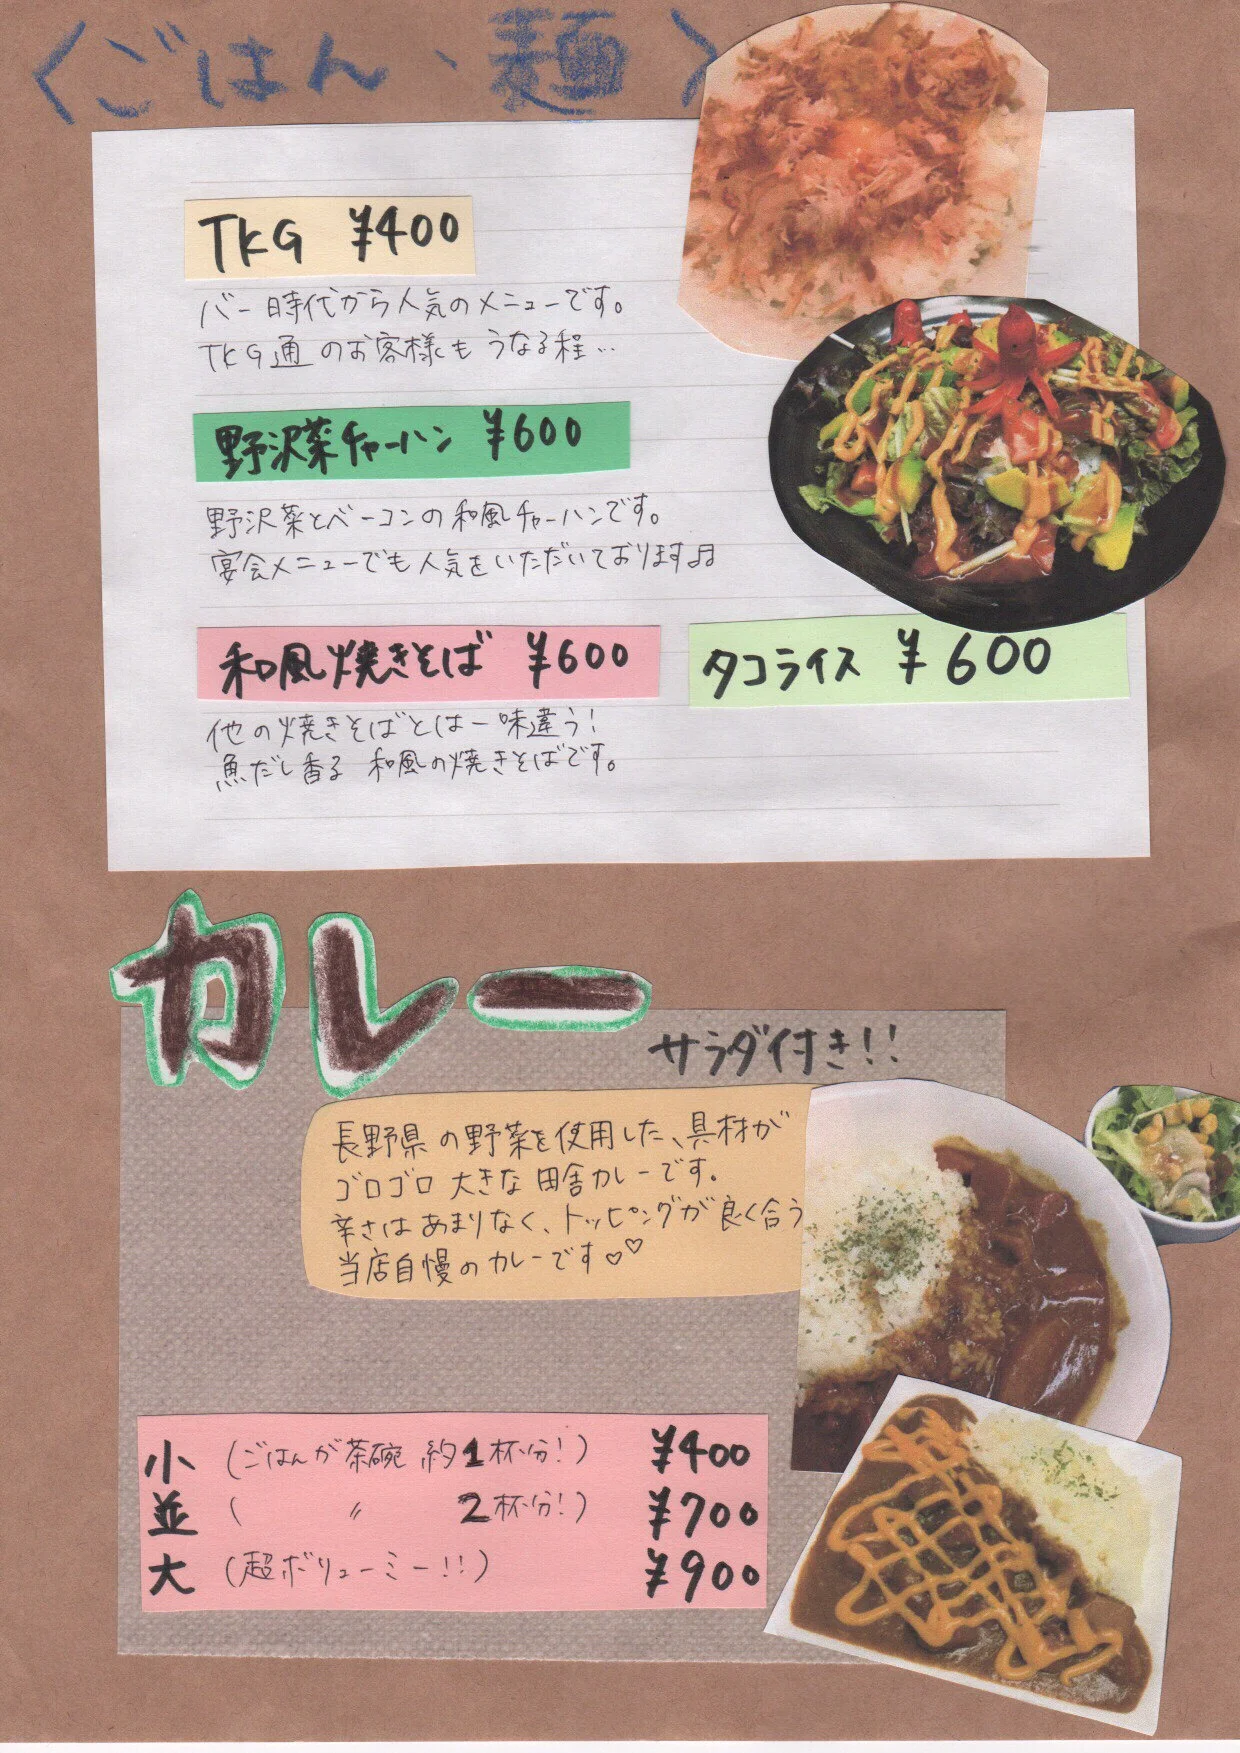 〈ごはん、麺〉
TKG ¥400
バー時代から人気のメニューです。
TKG通のお客様もうなる程…
野沢菜チャーハン ¥600
野沢菜とベーコンの和風チャーハンです。
宴会メニューでも人気をいただいております♫
和風焼きそば ¥600
タコライス ¥600
他の焼きそばとは一味違う!
魚だし香る 和風の焼きそばです。
カレー
サラダ付き!!
長野県の野菜を使用した、具材が
ゴロゴロ大きな田舎カレーです。
辛さはあまりなく、トッピングが良く合う
当店自慢のカレーです♡♡
小 (ごはんが茶碗 約1杯分!) ¥400
並 ( 〃 2杯分!) ¥700
大 (超ボリューミー!!) ¥900